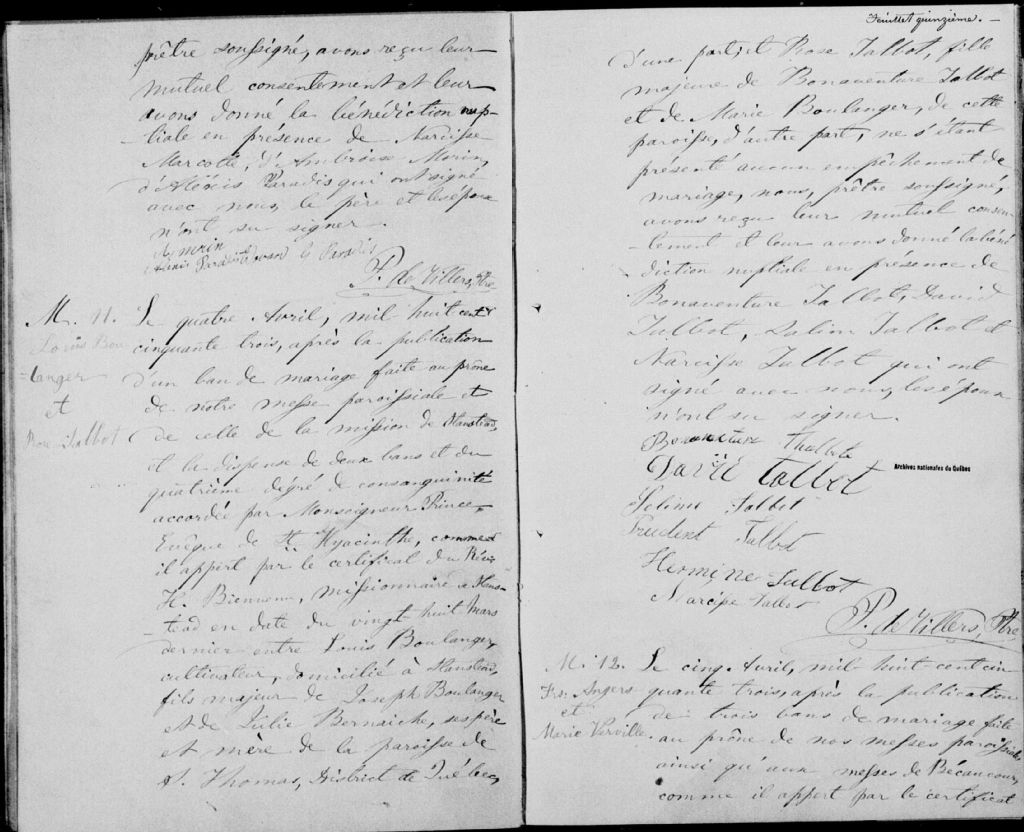 prêtre soussigné, avons reçu leur
mutuel consentement et leur
avons donné la bénédiction nup-
tiale en présence de Narcisse
Marcotte, d'Ambroise Morin,
d'Alexis Paradis qui ont signé
avec nous, le père et les époux
n'ont su signer.
A. Morin
Alexis Paradis Paradis
P. de Villers, Ptre
M. 11.
Louis Bou-
langer
et
Rose Talbot
Le quatre Avril, mil huit cent
cinquante trois, après la publication
d'un ban de mariage faite au prône
de notre messe paroissiale et
de celle de la mission de Stanstead,
et la dispense de deux bans et du
quatrième dégré de consanguinité
accordée par Monseigneur Prince,
Evêque de St. Hyacinthe, comme
il appert par le certificat du Révd
H. Bienvenu, missionnaire à Stans-
tead en date du vingt huit Mars
dernier entre Louis Boulanger,
cultivateur, domicilié à Stanstead,
fils majeur de Joseph Boulanger
et de Julie Bernaiche, ses père
et mère de la paroisse de
St. Thomas, District de Québec,
Feuillet quinzième. —
d'une part, et Rose Talbot, fille
majeure de Bonaventure Talbot
et de Marie Boulanger, de cette
paroisse, d'autre part, ne s'étant
présenté aucun empêchement de
mariage, nous, prêtre soussigné,
avons reçu leur mutuel consen-
tement et leur avons donné la béné
diction nuptiale en présence de
Bonaventure Talbot, David
Talbot, Salim Talbot et
Narcisse Talbot qui ont
signé avec nous, les époux
n'ont su signer.
Bonaventure Thalbot
David Talbot
Archives nationales du Québec
Talbot
Prudent Talbot
Hermine Talbot
Narcisse Talbot
P. de Villers, Ptre
M. 12.
Frs. Angers
et
Marie Verville.
Le cinq Avril, mil huit cent cin
quante trois, après la publication
de trois bans de mariage faite
au prône de nos messes paroissiales
ainsi qu'aux messes de Bécancour,
comme il appert par le certificat